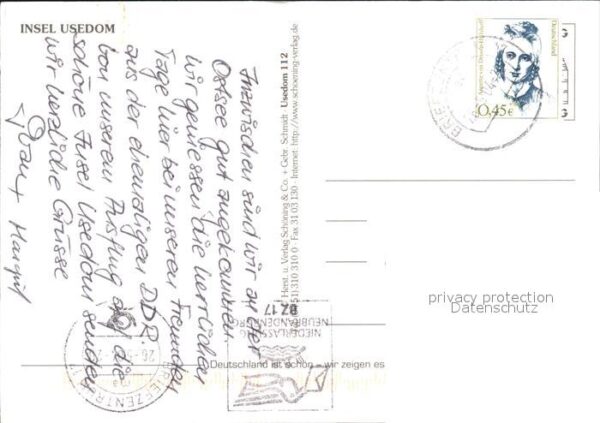 INSEL USEDOM
Inzwischen sind wir an der
Ostsee gut angekommen.
Wir geniessen die herrlichen
Tage hier bei unseren Freunden
aus der ehemaligen DDR.
Von unserem Ausflug auf die
schöne Insel Usedom senden
wir herzliche Grüsse
Margrit
Herst. u. Verlag Schöning & Co. + Gebr. Schmidt Usedom 112
310 310 0 · Fax 31 03 130 · Internet: http://www.schoening-verlag.de
Deutschland
Annette von Droste-Hülshoff
0,45€
privacy protection
Datenschutz
Deutschland ist schön - wir zeigen es
NIEDERLASSUNG
NEUBRANDENBURG
BZ 17
BRIEFZENTRUM